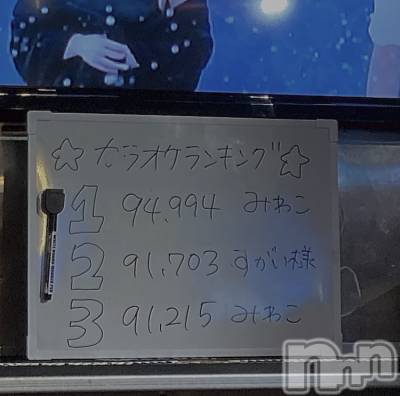 ☆カラオケランキング☆
1 94.994 みわこ
2 91.703 すがい様
3 91.215 みわこ